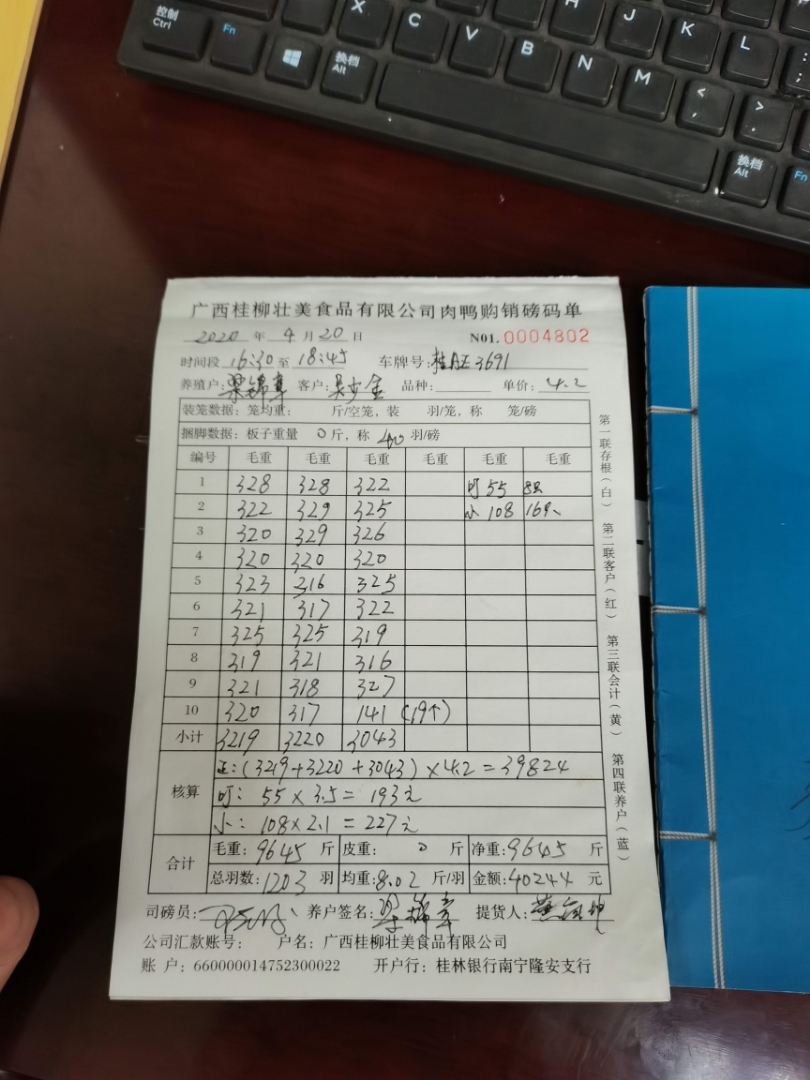 控制 Ctrl
Fn
换档 Alt
X C V B N M H J K L < , > .
换档 Alt
Fn
广西桂柳壮美食品有限公司肉鸭购销磅码单
2020 年 4 月 20 日 N01. 0004802
时间段 16:30 至 18:45 车牌号: 3691
养殖户: 梁锦章 客户: 品种: 单价: 4.2
装笼数据: 笼均重: 斤/空笼, 装 羽/笼, 称 笼/磅
捆脚数据: 板子重量 0 斤, 称 40 羽/磅
编号 毛重 毛重 毛重 毛重 毛重 毛重
1 328 328 322 叮 55 8只
2 322 329 325 小 108 16只
3 320 329 326
4 320 320 320
5 323 316 325
6 321 317 322
7 325 325 319
8 319 321 316
9 321 318 327
10 320 317 141 (19个)
小计 3219 3220 3043
核算
正: (3219+3220+3043)×4.2=39824
叮: 55×3.5=193元
小: 108×2.1=227元
合计
毛重: 9645 斤 皮重: 0 斤 净重: 9645 斤
总羽数: 1203 羽 均重: 8.02 斤/羽 金额: 40244 元
司磅员: 养户签名: 梁锦章 提货人:
公司汇款账号: 户名: 广西桂柳壮美食品有限公司
账 户: 660000014752300022 开户行: 桂林银行南宁隆安支行
第一联存根(白) 第二联客户(红) 第三联会计(黄) 第四联养户(蓝)